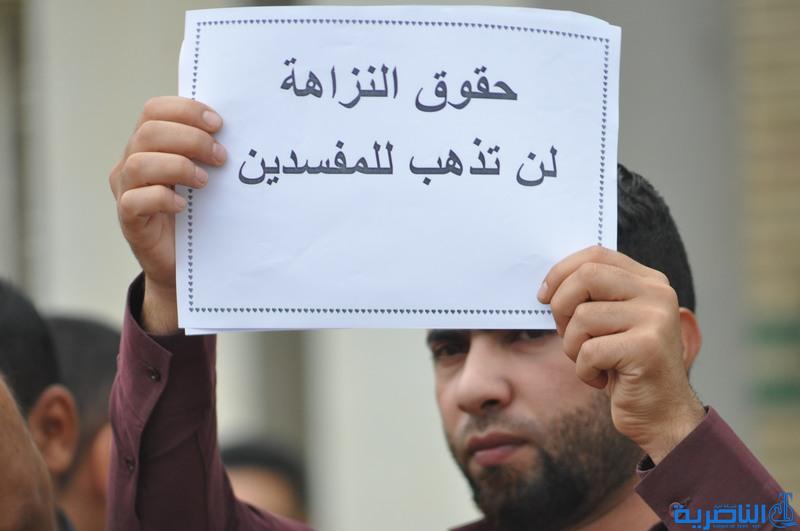 حقوق النزاهة
لن تذهب للمفسدين
الناصرية